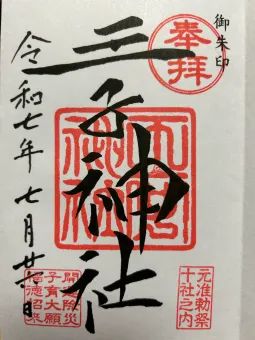 御朱印
奉拝
王子神社
元准勅祭
十社之内
開運除災
子育大願
福徳招来
令和七年七月廿日